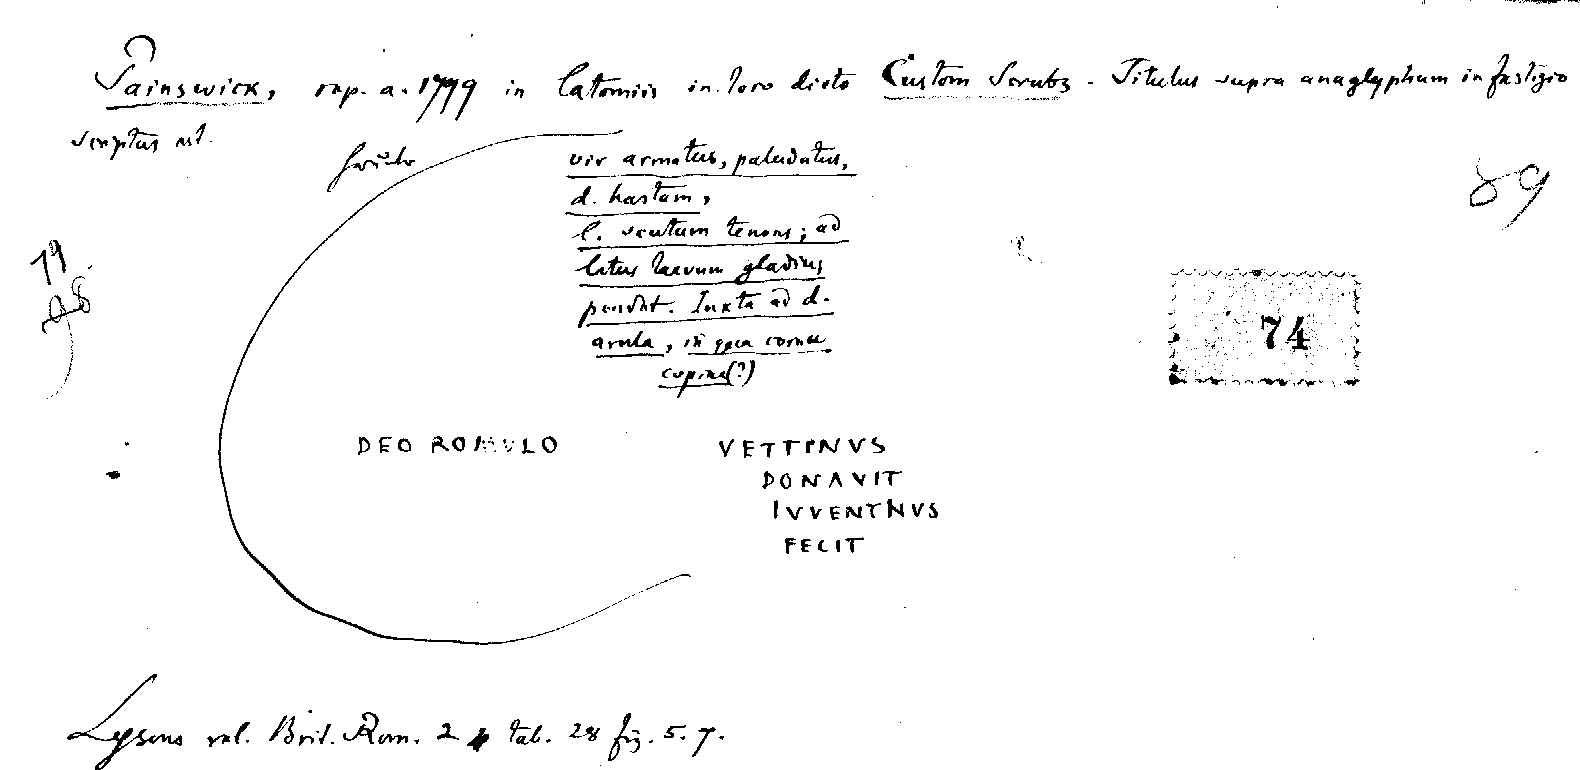 Painswick, rep. a. 1799 in latomiis in loco dicto Custom Scrubs - Titulus supra anaglyphum in fastigio
scriptus est.
vir armatus, paludatus,
d. hastam,
l. scutum tenens; ad
latus laevum gladius
pendet. Iuxta ad d.
arula, in qua cornu
copiae(?)
89
79
74
DEO ROMULO
VETTINVS
DONAVIT
IVVENTINVS
FECIT
Lysons rel. Brit. Rom. 2 tab. 28 fig. 5. 7.